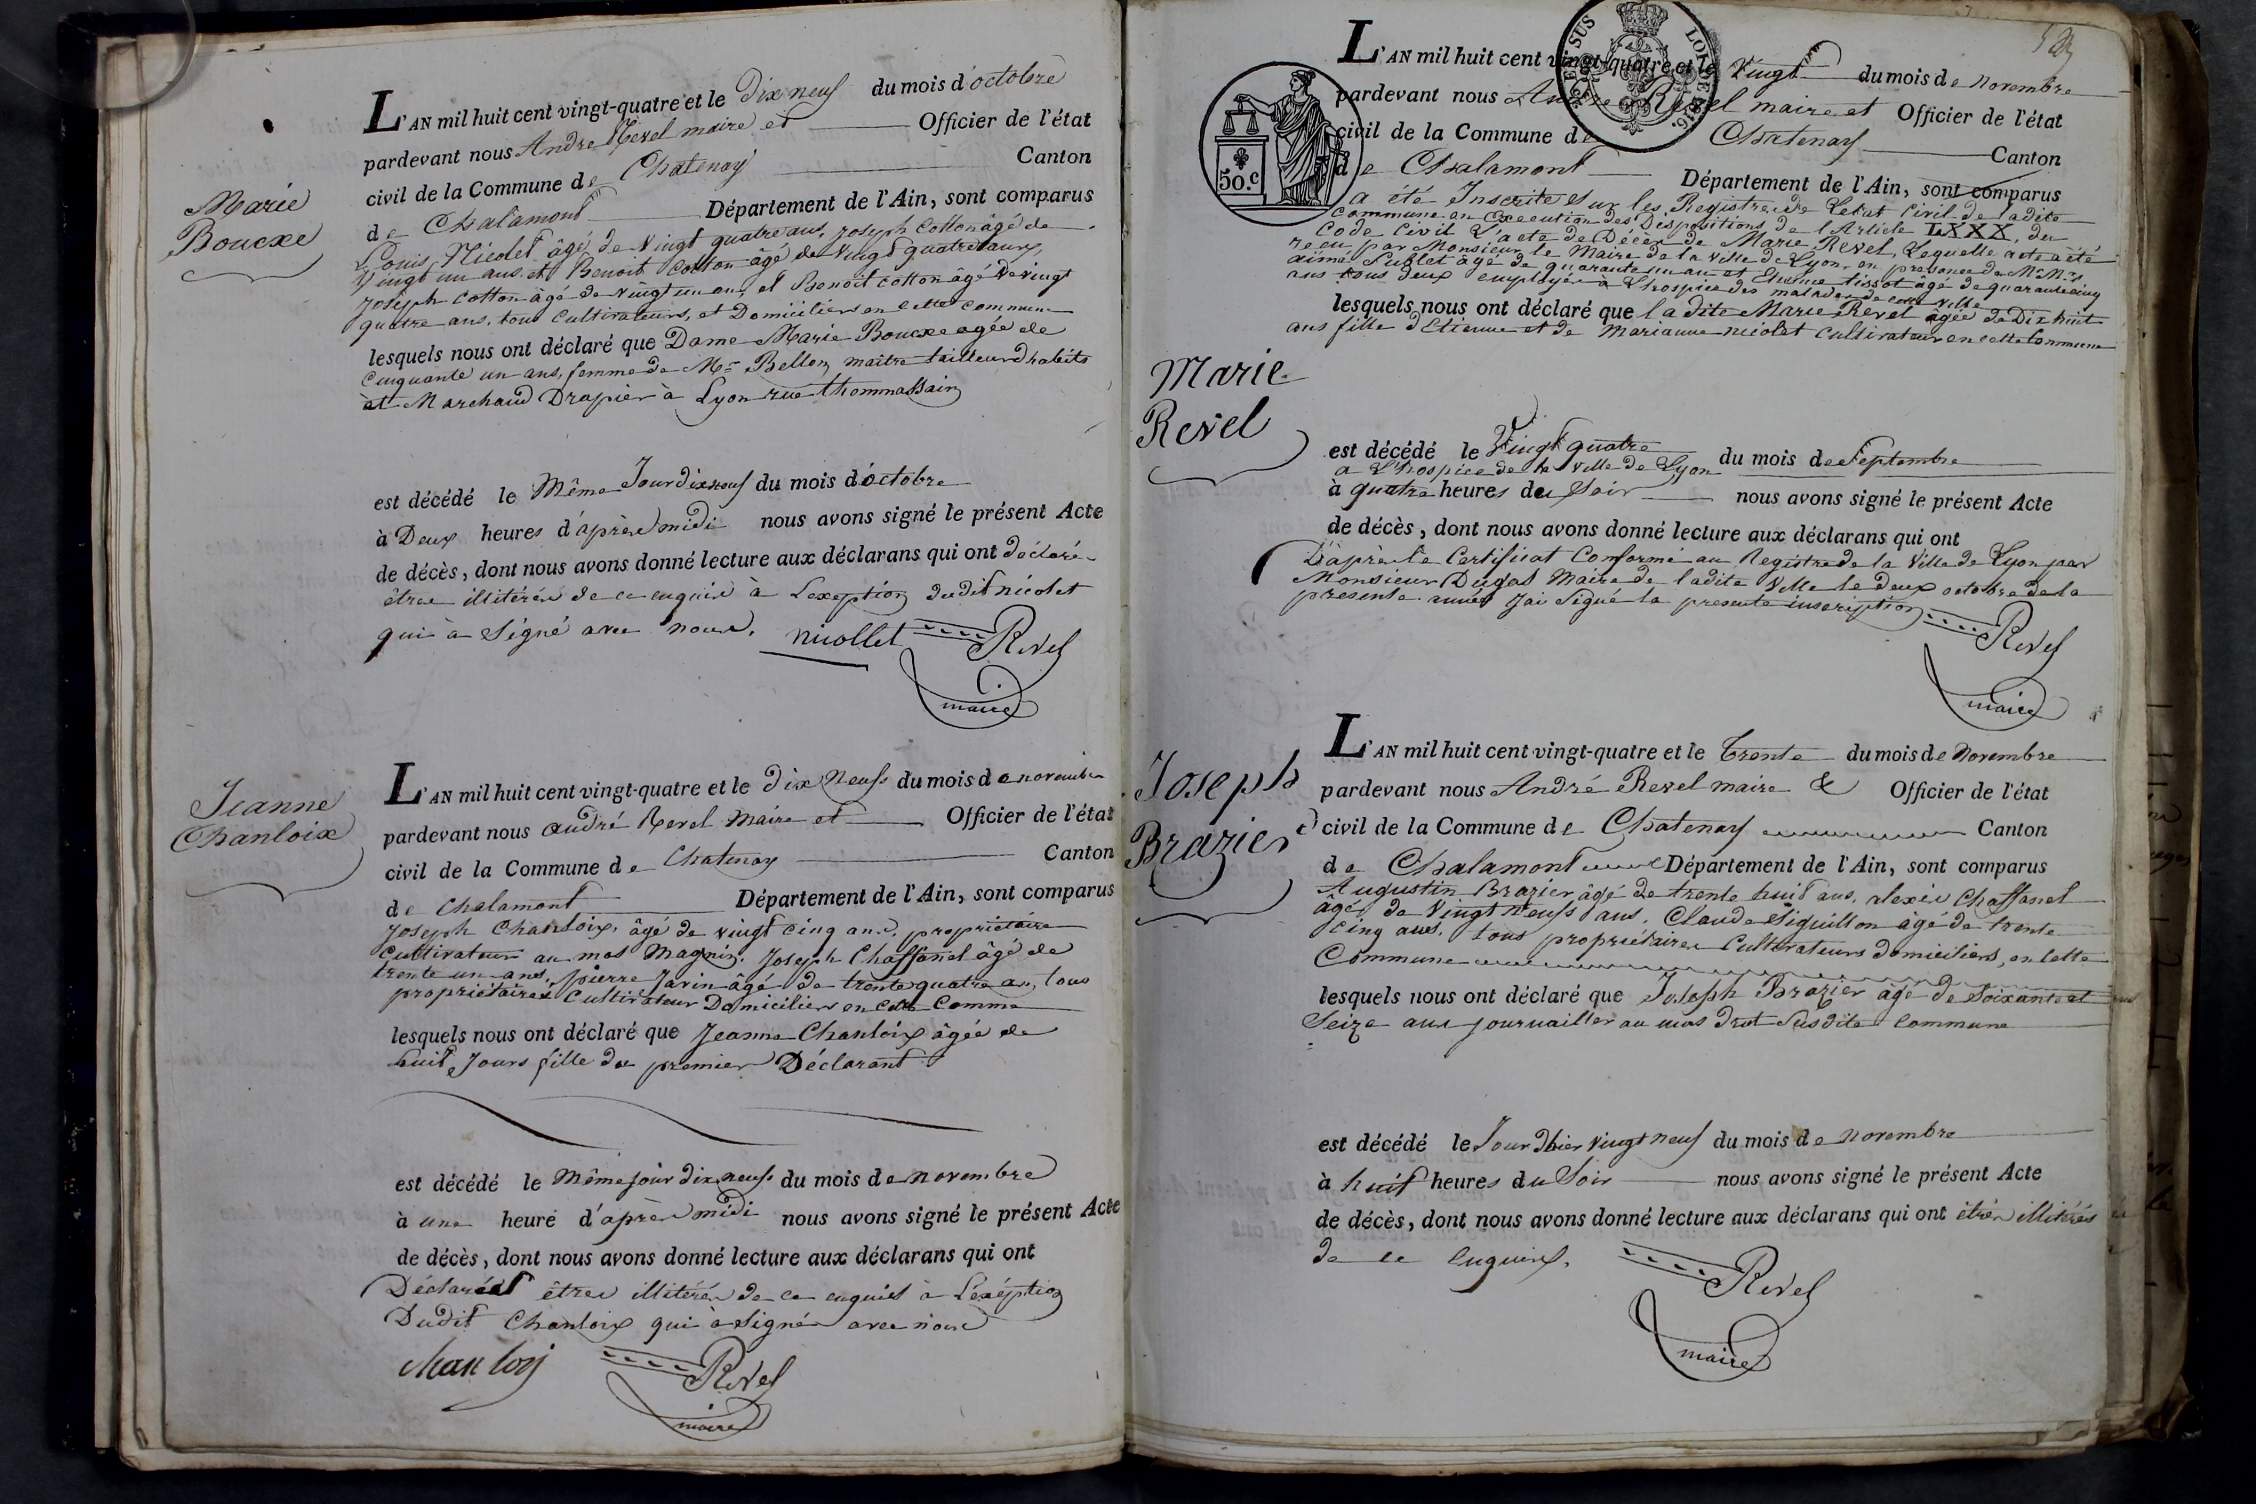 Marie
Boucxe
L'AN mil huit cent vingt-quatre et le Dix neuf du mois d'octobre
pardevant nous André Revel maire et Officier de l'état
civil de la Commune de Chatenay Canton
de Chalamont Département de l'Ain, sont comparus
Louis Nicolet âgé de Vingt quatre ans, Joseph Cotton âgé de
Vingt un ans et Benoit Cotton âgé de Vingt quatre ans,
Joseph Cotton âgé de vingt un ans, et Benoit Cotton âgé de vingt
quatre ans, tous Cultivateurs, et Domiciliers en cette commune
lesquels nous ont déclaré que Dame Marie Boucxe agée de
Cinquante un ans, femme de Mr Bellon maitre tailleur d'habits
et Marchand Drapier à Lyon rue thommassain
est décédé le Même Jour dix neuf du mois d'octobre
à Deux heures d'après midi nous avons signé le présent Acte
de décès, dont nous avons donné lecture aux déclarans qui ont déclaré
être illitérés de ce enquis à L'exeption dudit nicolet
qui à Signé avec nous. nicollet Revel
maire
Jeanne
Chanloix
L'AN mil huit cent vingt-quatre et le dix Neuf du mois de novembre
pardevant nous andré Revel Maire et Officier de l'état
civil de la Commune de Chatenay Canton
de Chalamont Département de l'Ain, sont comparus
Joseph Chanloix, âgé de vingt cinq ans, propriétaire
Cultivateur au mas Magnin. Joseph Chaffanel âgé de
trente un ans, pierre Javin âgé de trente quatre an, tous
propriétaires Cultivateur Domiciliers en cette Comme
lesquels nous ont déclaré que Jeanne Chanloix âgée de
huit Jours fille du premier Déclarant
est décédé le Même jour dix neuf du mois de novembre
à une heure d'après midi nous avons signé le présent Acte
de décès, dont nous avons donné lecture aux déclarans qui ont
Déclarés être illitérés de ce enquis à L'exéption
Dudit Chanloix qui à Signé avec nous
Chanloix Revel
maire
L'AN mil huit cent vingt-quatre et le Vingt du mois de novembre
pardevant nous André Revel maire et Officier de l'état
civil de la Commune de Chatenay Canton
de Chalamont Département de l'Ain, sont comparus
50.c
a été Inscrite sur les Registres de L'état Civil de ladite
Commune en Execution des Dispositions de l'Article LXXX, du
Code Civil L'acte de Décès de Marie Revel, Lequelle acte a été
recu par Monsieur le Maire de la ville de Lyon, en presence de Mrs
aimé Sublet âgé de quarante un an et Etienne tissot âgé de quarante cinq
ans tous deux employés à L'hospice des malades de cette ville
lesquels nous ont déclaré que ladite Marie Revel âgée de Dix huit
ans fille d'Etienne et de Marianne nicolet Cultivateur en cette Commune
Marie
Revel
est décédé le Vingt quatre du mois de Septembre
a L'hospice de la ville de Lyon
à quatre heures du Soir nous avons signé le présent Acte
de décès, dont nous avons donné lecture aux déclarans qui ont
D'après le Certificat Conforme au Registre de la Ville de Lyon par
Monsieur Dugas Maire de ladite Ville le deux octobre de la
presente année J'ai Signé la presente inscription Revel
maire
Joseph
Brazier
L'AN mil huit cent vingt-quatre et le Trente du mois de Novembre
pardevant nous André Revel maire & Officier de l'état
civil de la Commune de Chatenay Canton
de Chalamont Département de l'Ain, sont comparus
Augustin Brazier âgé de trente huit ans, alexis Chaffanel
âgé de Vingt Neuf ans, Claude Siguillon âgé de trente
cinq ans, tous propriétaires Cultivateurs domiciliers, en Cette
Commune
lesquels nous ont déclaré que Joseph Brazier âgé de Soixante et
Seize ans journaillier au mas Drut Susdite Commune
est décédé le Jour d'hier vingt neuf du mois de novembre
à huit heures du Soir nous avons signé le présent Acte
de décès, dont nous avons donné lecture aux déclarans qui ont êtres illitérés
de ce Enquis. Revel
maire